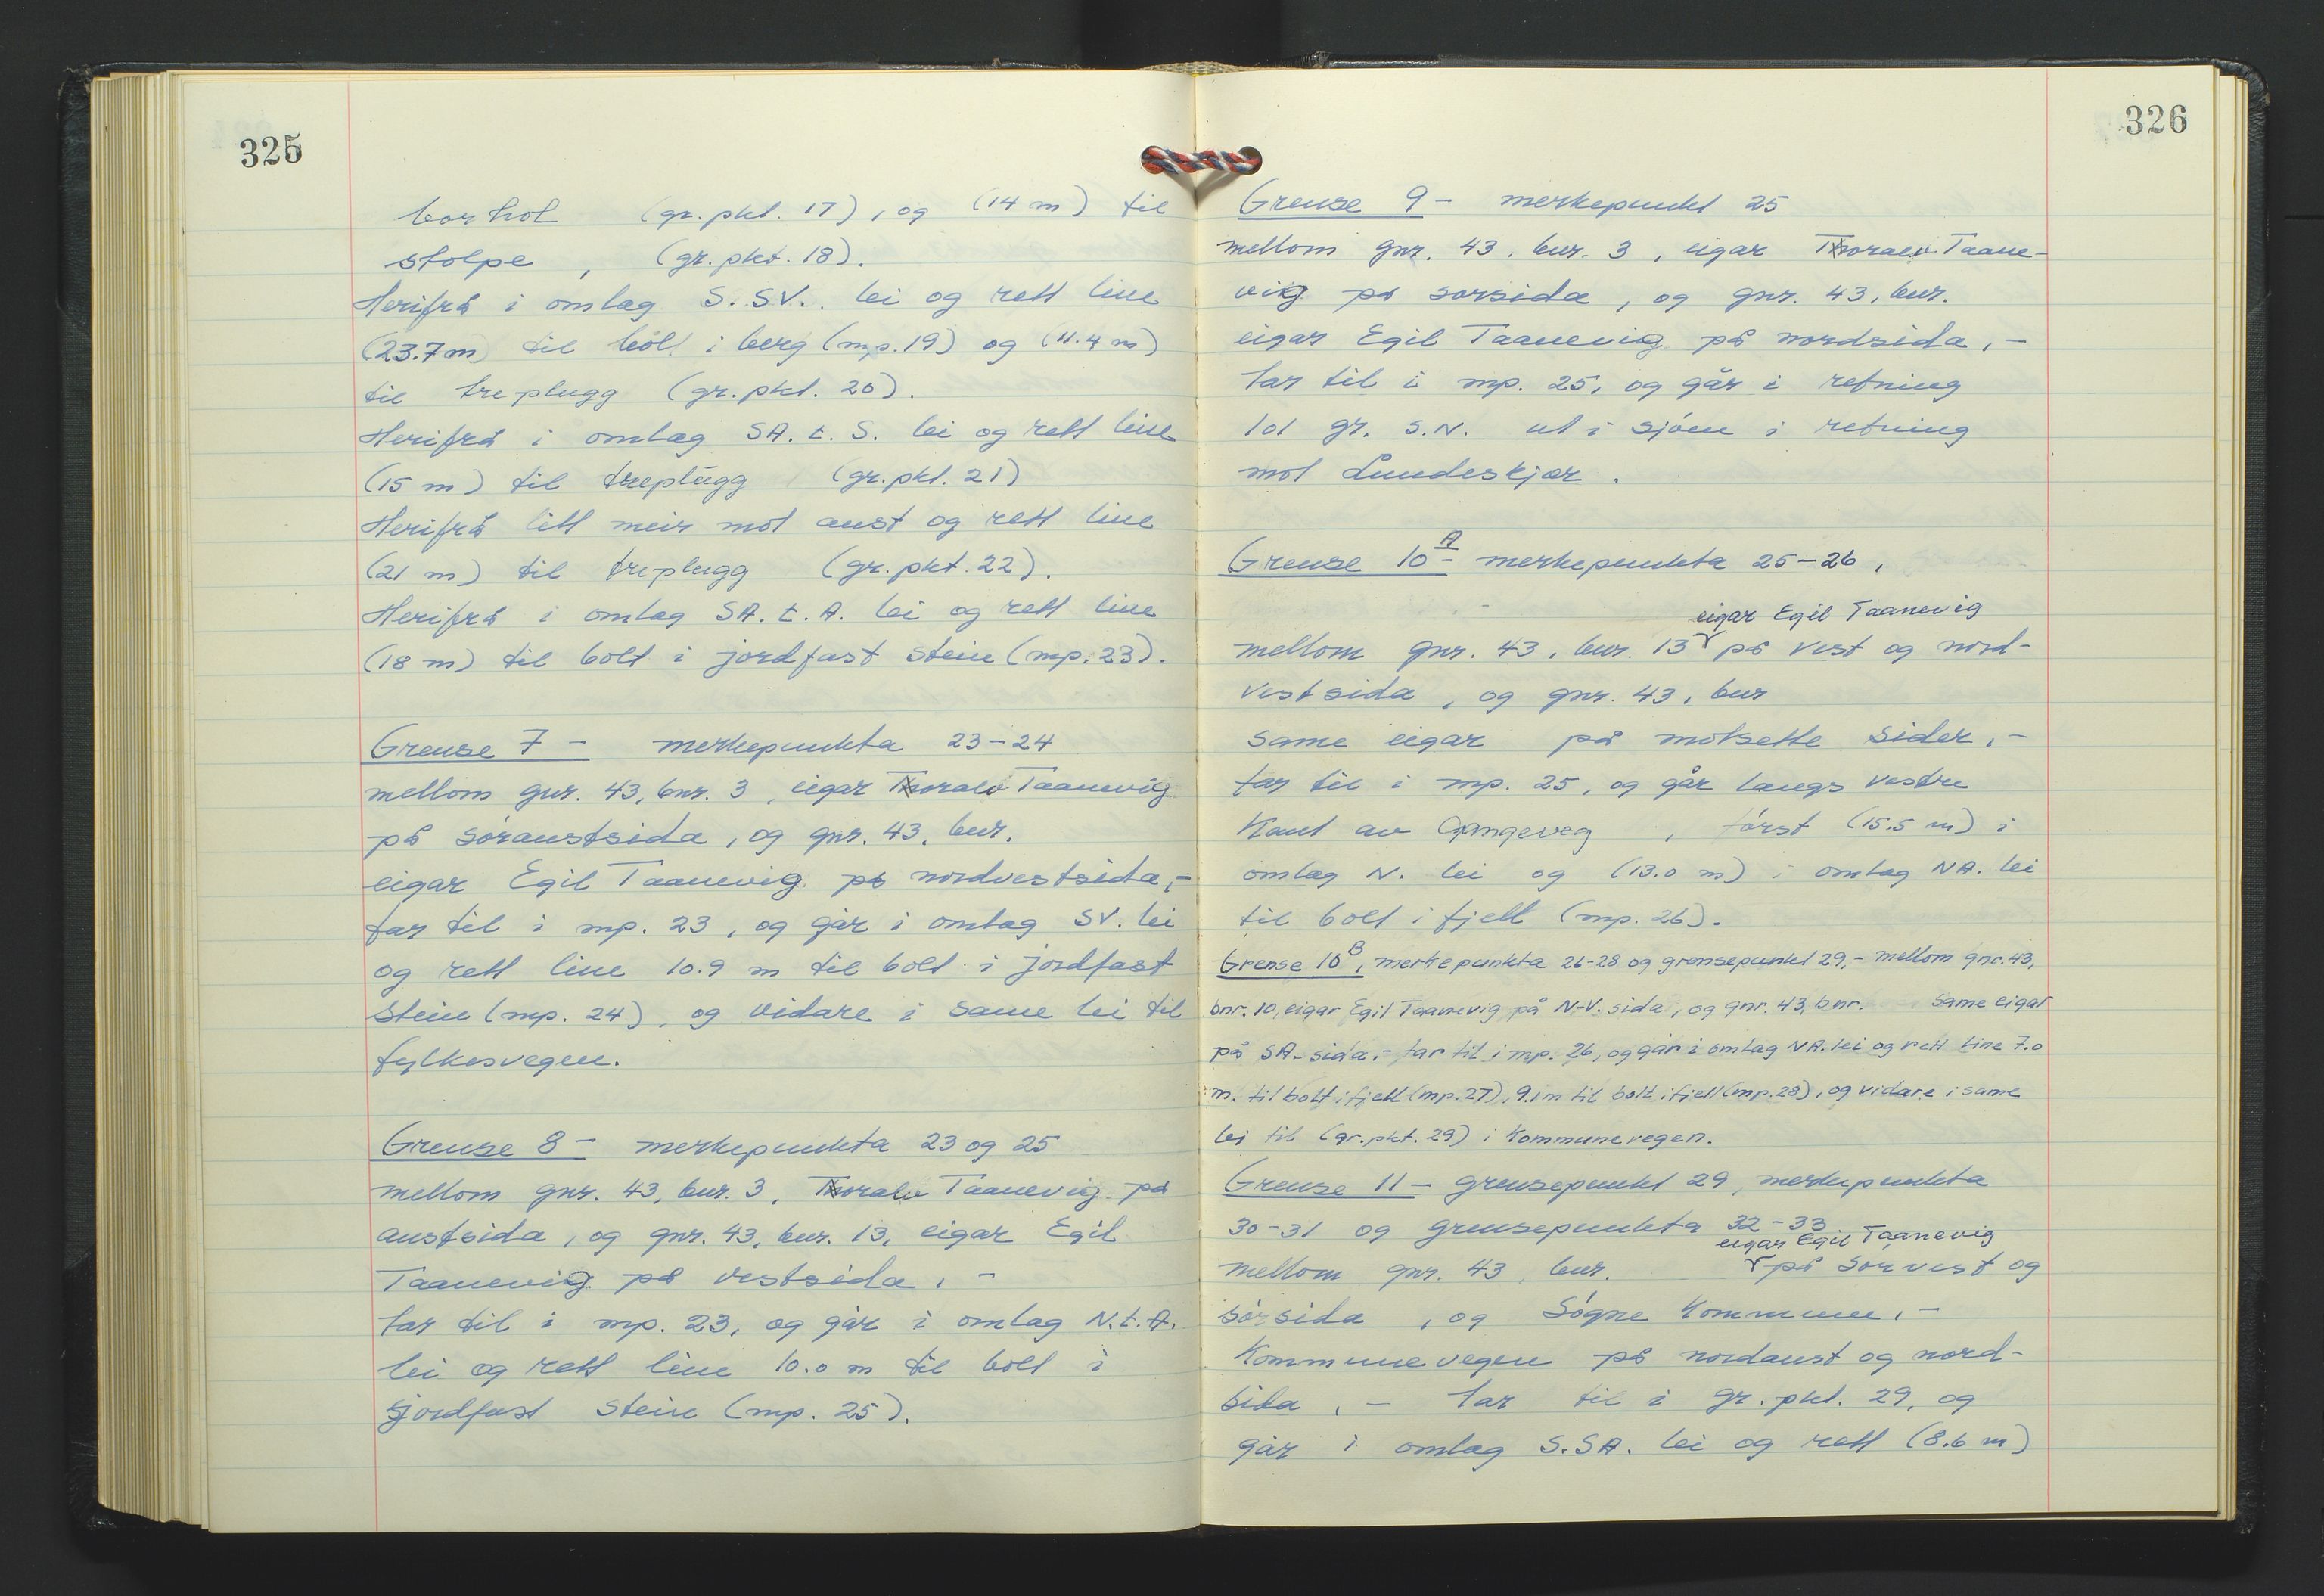 325
borhol (gr.pkt. 17), og (14 m) til
stolpe, (gr.pkt. 18).
Herifrå i omlag S.SV. lei og rett line
(23.7 m) til bolt i berg (mp. 19) og (11.4 m)
til treplugg (gr.pkt. 20).
Herifrå i omlag SA.t.S. lei og rett line
(15 m) til treplugg (gr.pkt. 21)
Herifrå litt meir mot aust og rett line
(21 m) til treplugg (gr.pkt. 22).
Herifrå i omlag SA.t.A. lei og rett line
(18 m) til bolt i jordfast stein (mp. 23).
Grense 7 - merkepunkta 23-24
mellom gnr. 43, bnr. 3, eigar Thoralv Taanevig
på søraustsida, og gnr. 43, bnr.
eigar Egil Taanevig på nordvestsida,-
tar til i mp. 23, og går i omlag SV. lei
og rett line 10.9 m til bolt i jordfast
stein (mp. 24), og vidare i same lei til
fylkesvegen.
Grense 8 - merkepunkta 23 og 25
mellom gnr. 43, bnr. 3, Thoralv Taanevig på
austsida, og gnr. 43, bnr. 13, eigar Egil
Taanevig på vestsida, -
tar til i mp. 23, og går i omlag N.t.A.
lei og rett line 10.0 m til bolt i
jordfast stein (mp. 25).
326
Grense 9 - merkepunkt 25
mellom gnr. 43, bnr. 3, eigar Thoralv Taane-
vig på sørsida, og gnr. 43, bnr.
eigar Egil Taanevig på nordsida, -
tar til i mp. 25, og går i retning
101 gr. S.N. ut i sjøen i retning
mot Lundeskjær.
Grense 10 A - merkepunkta 25-26,
eigar Egil Taanevig
mellom gnr. 43, bnr. 13 på vest og nord-
vestsida, og gnr. 43, bnr
same eigar på motsette sider, -
tar til i mp. 25, og går langs vestre
kant av Gangeveg, først (15.5 m) i
omlag N. lei og (13.0 m) i omlag NA. lei
til bolt i fjell (mp. 26).
Grense 10 B, merkepunkta 26-28 og grensepunkt 29,- mellom gnr. 43,
bnr. 10, eigar Egil Taanevig på N-V. sida, og gnr. 43, bnr. same eigar
på SA-sida,- tar til i mp. 26, og går i omlag NA. lei og rett line 7.0
m. til bolt i fjell (mp. 27), 9.1 m til bolt i fjell (mp. 28), og vidare i same
lei til (gr.pkt. 29) i Kommunevegen.
Grense 11 - grensepunkt 29, merkepunkta
30-31 og grensepunkta 32-33
eigar Egil Taanevig
mellom gnr. 43, bnr. på sørvest og
sørsida, og Søgne Kommune, -
Kommunevegen på nordaust og nord-
sida, - tar til i gr.pkt. 29, og
går i omlag S.SA. lei og rett (8.6 m)